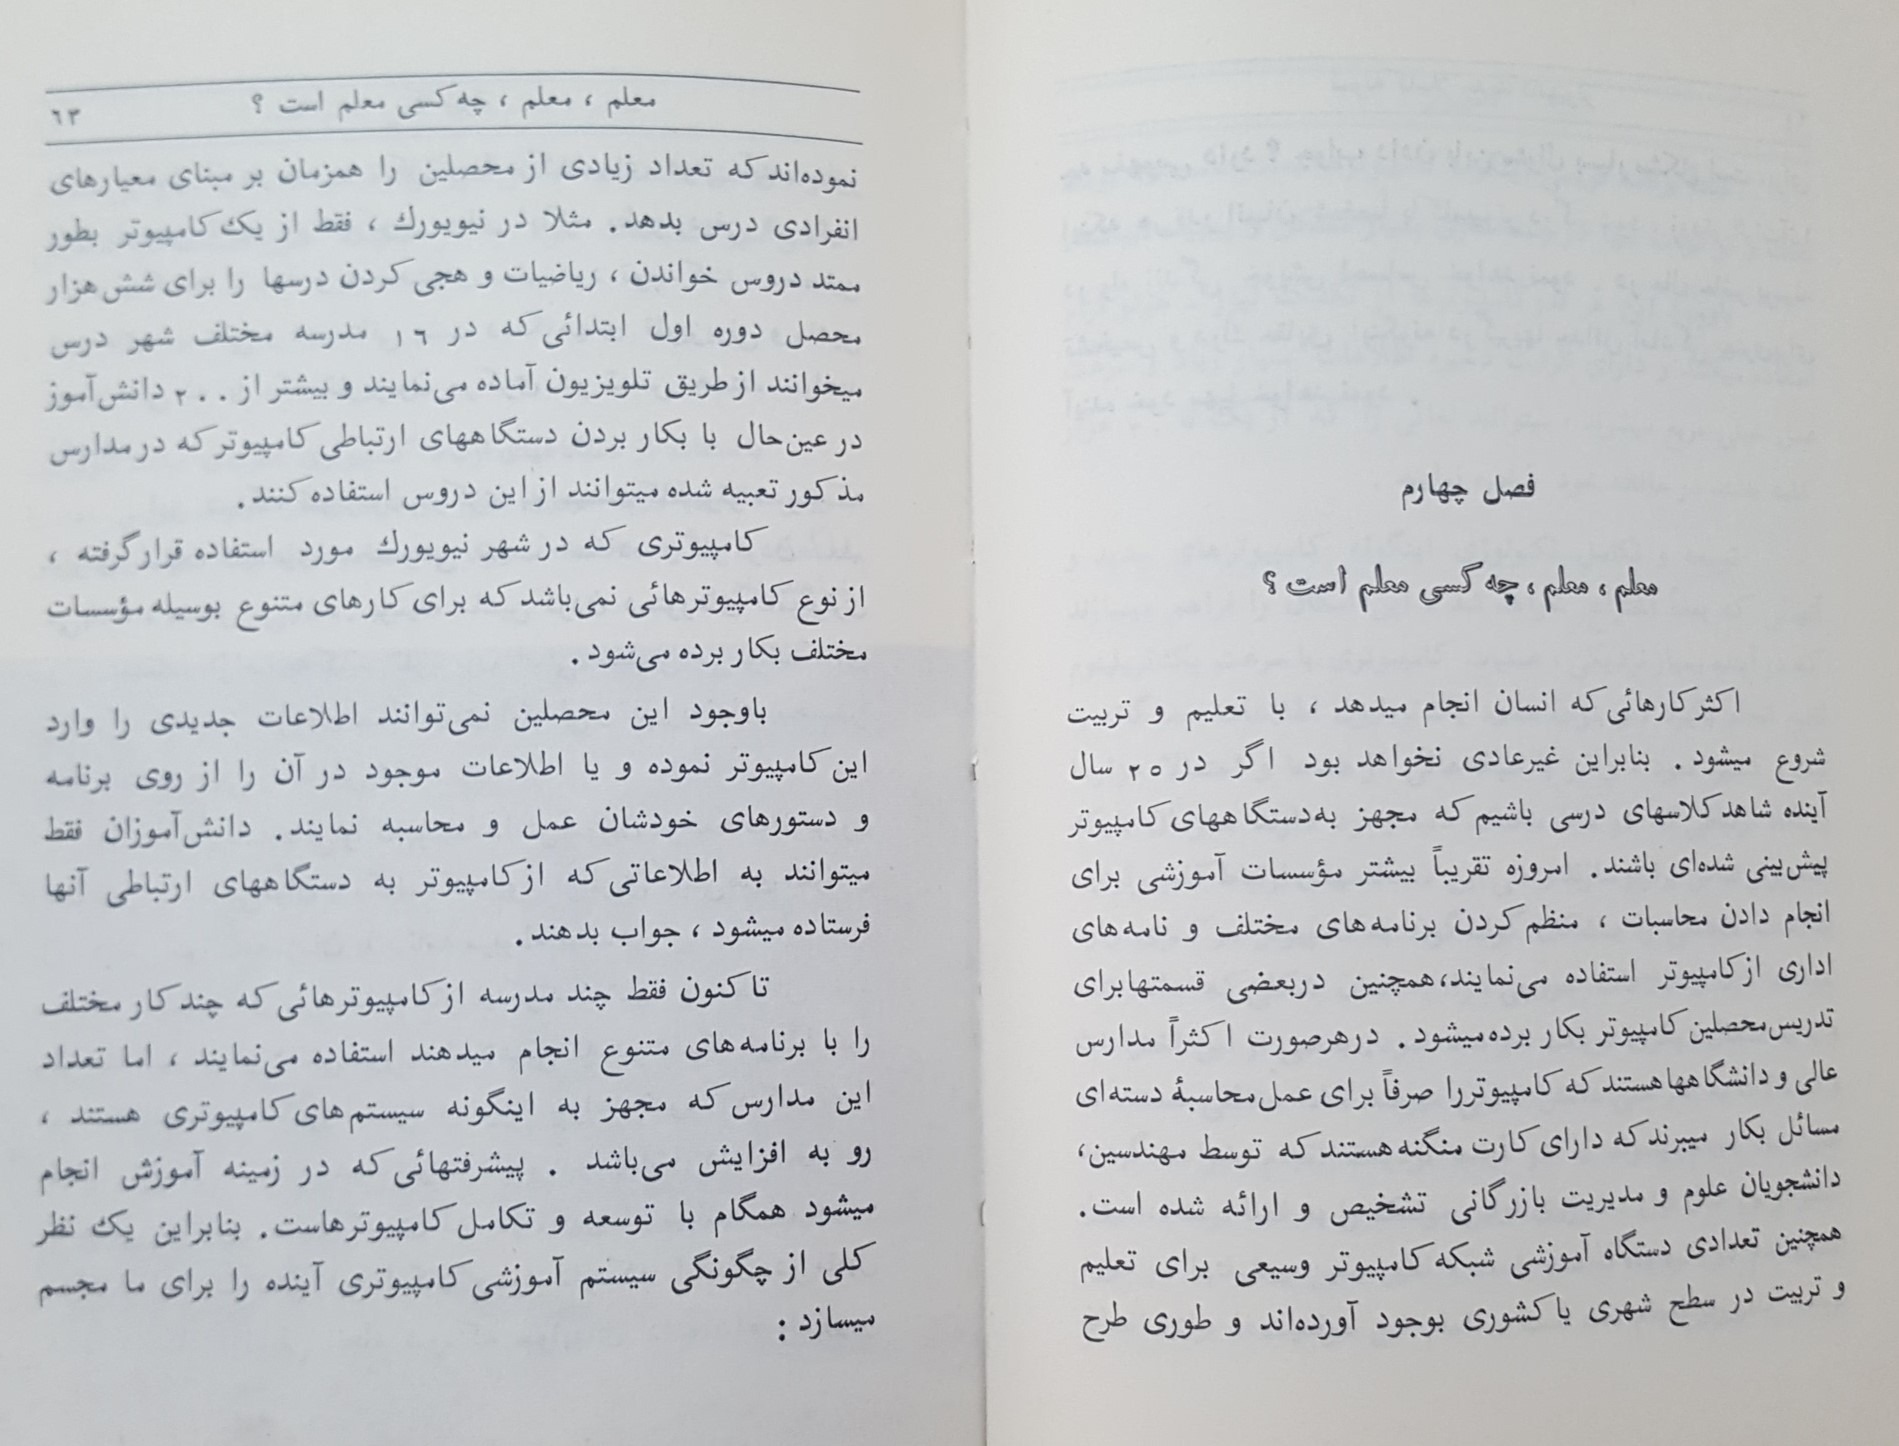 فصل چهارم
معلم ، معلم ، چه کسی معلم است ؟
اکثر کارهائی که انسان انجام میدهد ، با تعلیم و تربیت
شروع میشود . بنابراین غیرعادی نخواهد بود اگر در ۲۵ سال
آینده شاهد کلاسهای درسی باشیم که مجهز به‌دستگاههای کامپیوتر
پیش‌بینی شده‌ای باشند. امروزه تقریباً بیشتر مؤسسات آموزشی برای
انجام دادن محاسبات ، منظم کردن برنامه‌های مختلف و نامه‌های
اداری از کامپیوتر استفاده می‌نمایند،همچنین دربعضی قسمتها برای
تدریس محصلین کامپیوتر بکار برده میشود . درهرصورت اکثراً مدارس
عالی و دانشگاهها هستند که کامپیوتر را صرفاً برای عمل محاسبهٔ دسته‌ای
مسائل بکار میبرند که دارای کارت منگنه هستند که توسط مهندسین،
دانشجویان علوم و مدیریت بازرگانی تشخیص و ارائه شده است.
همچنین تعدادی دستگاه آموزشی شبکه کامپیوتر وسیعی برای تعلیم
و تربیت در سطح شهری یا کشوری بوجود آورده‌اند و طوری طرح
معلم ، معلم ، چه کسی معلم است ؟ ۶۳
نموده‌اند که تعداد زیادی از محصلین را همزمان بر مبنای معیارهای
انفرادی درس بدهد. مثلا در نیویورك ، فقط از یک کامپیوتر بطور
ممتد دروس خواندن ، ریاضیات و هجی کردن درسها را برای شش هزار
محصل دوره اول ابتدائی که در ۱۶ مدرسه مختلف شهر درس
میخوانند از طریق تلویزیون آماده می‌نمایند و بیشتر از ۲۰۰ دانش‌آموز
در عین‌حال با بکار بردن دستگاههای ارتباطی کامپیوتر که در مدارس
مذکور تعبیه شده میتوانند از این دروس استفاده کنند.
کامپیوتری که در شهر نیویورك مورد استفاده قرار گرفته ،
از نوع کامپیوترهائی نمی‌باشد که برای کارهای متنوع بوسیله مؤسسات
مختلف بکار برده می‌شود .
باوجود این محصلین نمی‌توانند اطلاعات جدیدی را وارد
این کامپیوتر نموده و یا اطلاعات موجود در آن را از روی برنامه
و دستورهای خودشان عمل و محاسبه نمایند. دانش‌آموزان فقط
میتوانند به اطلاعاتی که از کامپیوتر به دستگاههای ارتباطی آنها
فرستاده میشود ، جواب بدهند.
تا کنون فقط چند مدرسه از کامپیوترهائی که چند کار مختلف
را با برنامه‌های متنوع انجام میدهند استفاده می‌نمایند ، اما تعداد
این مدارس که مجهز به اینگونه سیستم‌های کامپیوتری هستند ،
رو به افزایش می‌باشد . پیشرفتهائی که در زمینه آموزش انجام
میشود همگام با توسعه و تکامل کامپیوترهاست. بنابراین یک نظر
کلی از چگونگی سیستم آموزشی کامپیوتری آینده را برای ما مجسم
میسازد :